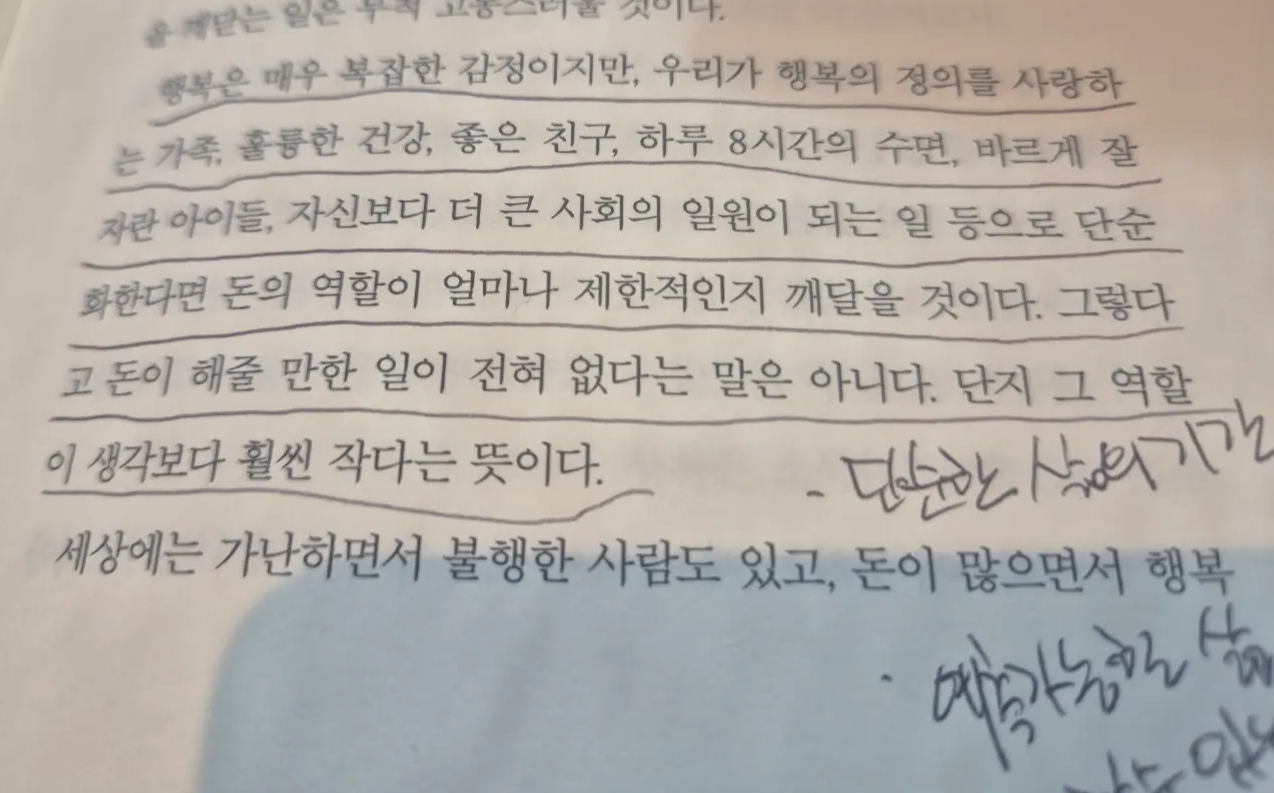 을 깨닫는 일은 무척 고통스러울 것이다.
행복은 매우 복잡한 감정이지만, 우리가 행복의 정의를 사랑하
는 가족, 훌륭한 건강, 좋은 친구, 하루 8시간의 수면, 바르게 잘
자란 아이들, 자신보다 더 큰 사회의 일원이 되는 일 등으로 단순
화한다면 돈의 역할이 얼마나 제한적인지 깨달을 것이다. 그렇다
고 돈이 해줄 만한 일이 전혀 없다는 말은 아니다. 단지 그 역할
이 생각보다 훨씬 작다는 뜻이다.
- 단순한 삶의
세상에는 가난하면서 불행한 사람도 있고, 돈이 많으면서 행복
· 예측가능한